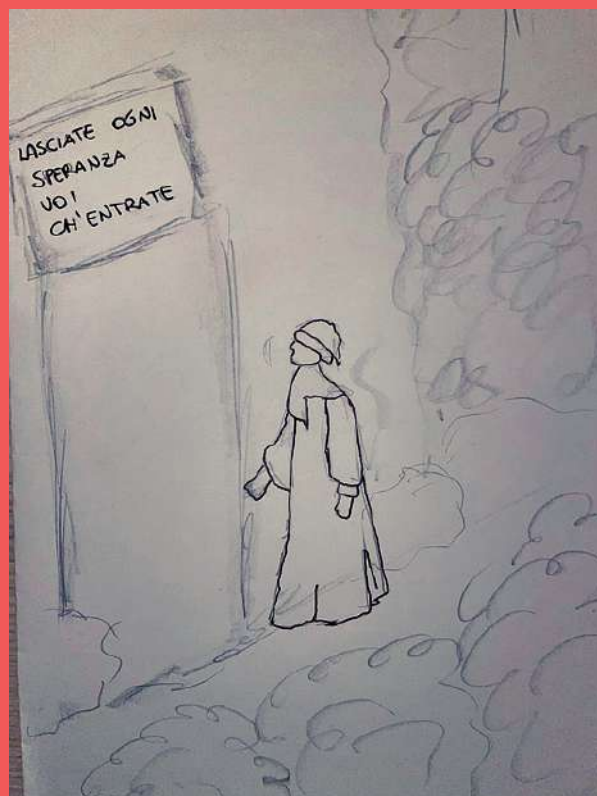 LASCIATE OGNI
SPERANZA
VOI
CH'ENTRATE